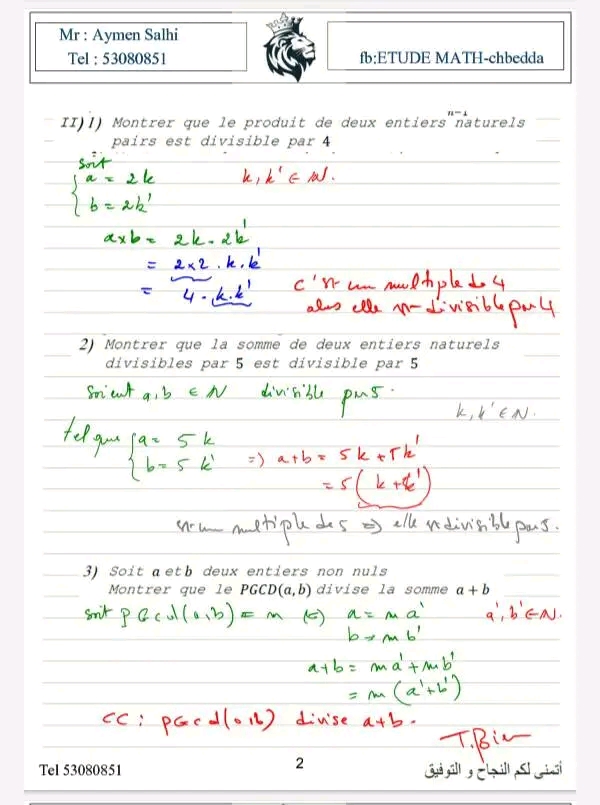 Mr : Aymen Salhi
Tel : 53080851
fb:ETUDE MATH-chbedda
n-1
II) 1) Montrer que le produit de deux entiers naturels
pairs est divisible par 4
soit
a = 2k k, k' ∈ IN.
b = 2k'
a x b = 2k . 2k'
= 2 x 2 . k . k'
= 4 . k . k' c'st un multiple de 4
alors elle st divisible par 4
2) Montrer que la somme de deux entiers naturels
divisibles par 5 est divisible par 5
soient a, b ∈ N divisible par 5.
k, k' ∈ N.
tel que a = 5 k
b = 5 k' => a+b = 5k + 5k'
= 5 ( k + k' )
st un multiple de 5 => elle st divisible par 5.
3) Soit a et b deux entiers non nuls
Montrer que le PGCD(a,b) divise la somme a + b
soit PGcd(a,b) = m (=) a = m a' a', b' ∈ IN.
b = m b'
a + b = m a' + m b'
= m (a' + b')
CC : PGcd(a,b) divise a+b.
T. Bien
Tel 53080851
2
أتمنى لكم النجاح و التوفيق